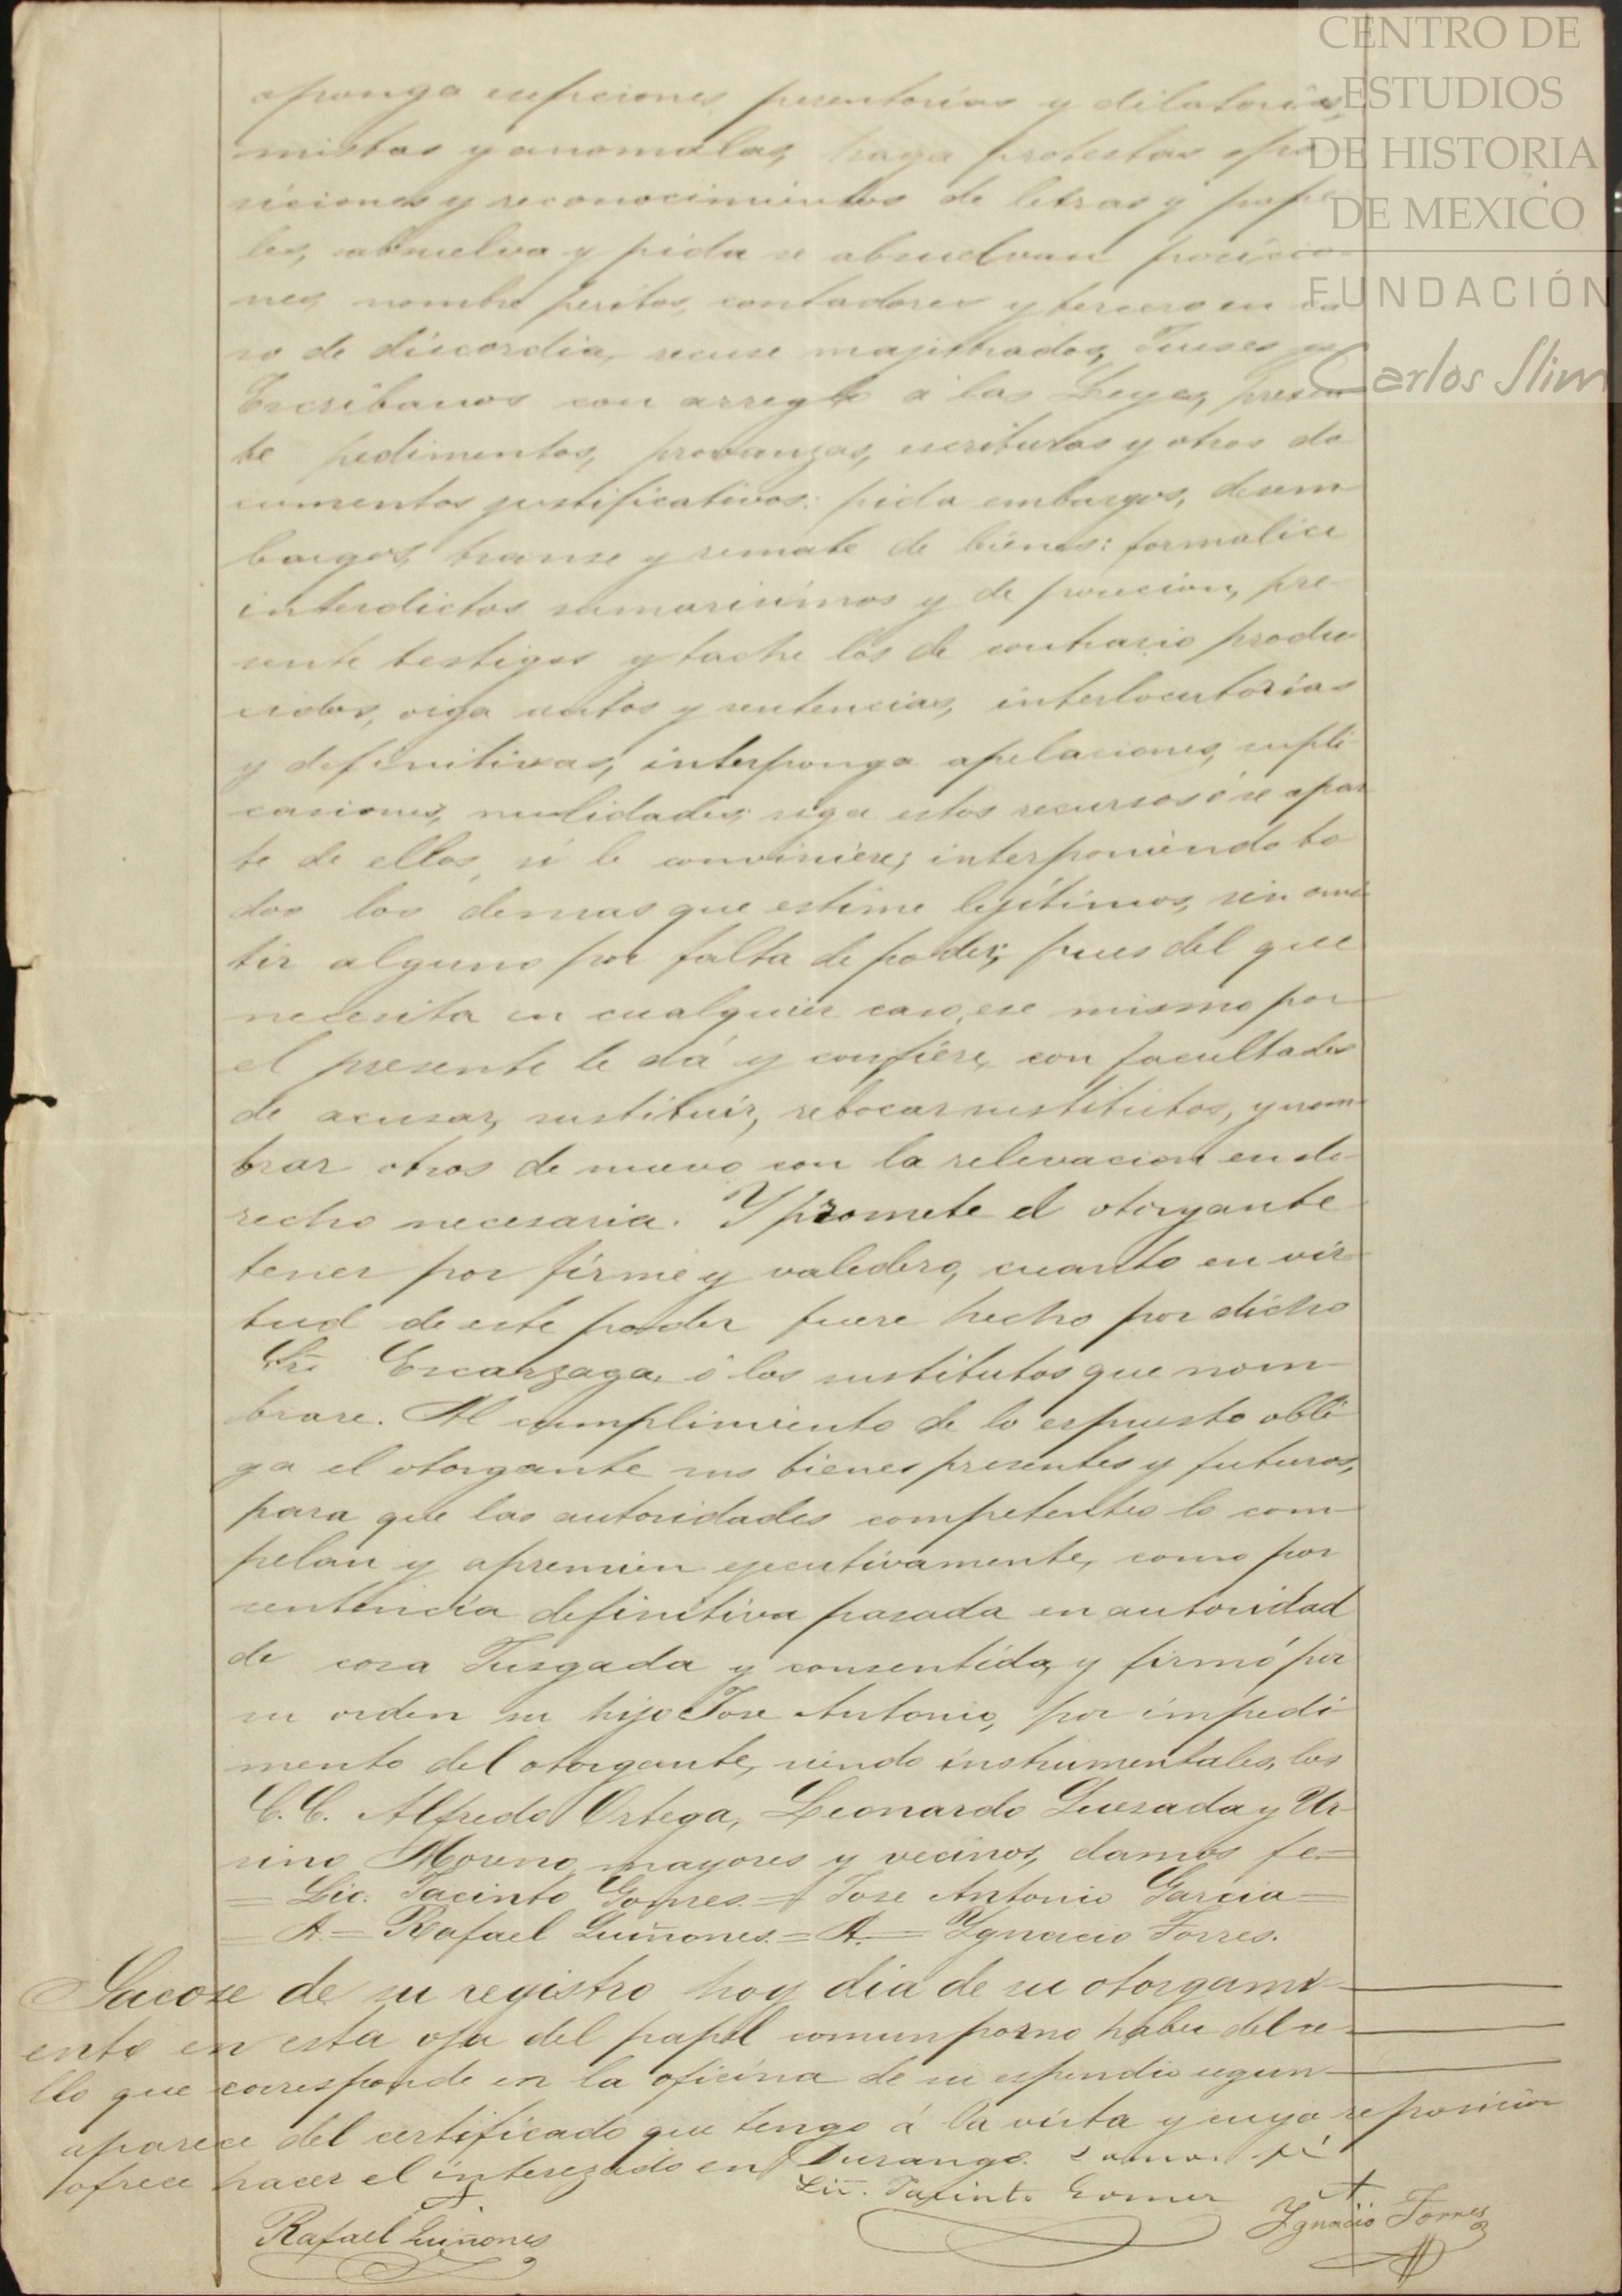 CENTRO DE
ESTUDIOS
DE HISTORIA
DE MEXICO
FUNDACIÓN
Carlos Slim
oponga esepciones perentorias y dilatorias,
mistas y anomalas, haga protestas espo
siciones y reconocimientos de letras y pape
les, absuelva y pida se absuelvan posicio
nes, nombre peritos, contadores y tercero en ca
so de discordia, recuse majistrados, Jueses y
Escribanos con arreglo á las Leyes, presen
te pedimentos, provanzas, escrituras y otros do
cumentos justificativos: pida embargos, desem
bargos, transe y remate de bienes: formalice
interdictos sumarisimos y de posicion, pre
sente testigos y tache los de contrario produ
cidos, oiga autos y sentencias, interlocutorias
y definitivas, interponga apelaciones, supli
casiones, nulidades; siga estos recursos ó se apar
te de ellos, si le conviniere; interponiendo to
dos los demas que estime lejitimos, sin omi
tir alguno por falta de poder; pues del que
necesita en cualquier caso, ese mismo por
el presente le dá y confiere, con facultades
de acusar, sustituir, rebocar sustitutos, y nom
brar otros de nuevo con la relevacion en de
recho necesaria. Y promete el otorgante
tener por firme y valedero, cuanto en vir
tud de este poder fuere hecho por dicho
Sr. Escarzaga, ó los sustitutos que nom
brare. Al cumplimiento de lo espuesto obli
ga el otorgante sus bienes presentes y futuros,
para que las autoridades competentes lo com
pelan y apremien ejecutivamente, como por
sentencia definitiva pasada en autoridad
de cosa Jusgada y consentida, y firmó por
su orden su hijo Jose Antonio, por impedi
mento del otorgante, siendo instrumentales, los
C.C. Alfredo Ortega, Leonardo Quesada y Ur
sino Moreno mayores y vecinos, damos fe=
= Lic. Jacinto Gomes.= Jose Antonio Garcia=
= A.= Rafael Quiñones.= A.= Ygnacio Torres.
Sacose de su registro hoy dia de su otorgami
ento en esta oja del papel comun por no haber del se
llo que corresponde en la oficina de su espendio segun
aparece del certificado que tengo á la vista y cuya reposicion
ofrece hacer el interezado en Durango. Damos fé
Lic. Jacinto Gomez
A. A.
Rafael Quiñones
Ygnacio Torres